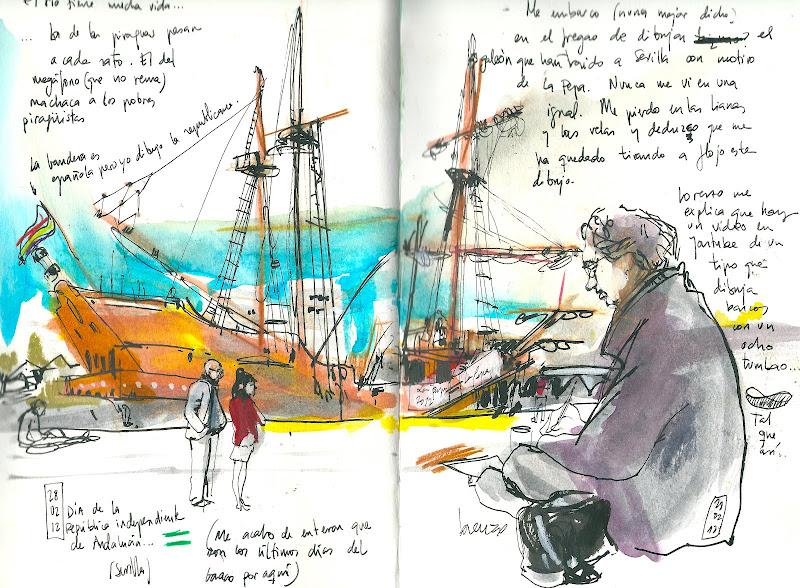 El río tiene mucha vida...
... los de las piraguas pasan
a cada rato. El del
megáfono (que no rema)
machaca a los pobres
piragüistas
La bandera es
española pero yo dibujo la republicana.
Me embarco (nunca mejor dicho)
en el fregao de dibujar el
galeón que han traído a Sevilla con motivo
de la Pepa. Nunca me vi en una
igual. Me pierdo en las lianas
y las velas y deduzco que me
ha quedado tirando a flojo este
dibujo.
Lorenzo me
explica que hay
un vídeo en
youtube de un
tipo que
dibuja
barcos
con un
ocho
tumbao...
Tal
que
así..
28
02
12
Día de la
República independiente
de Andalucía...
(Sevilla)
(Me acabo de enterar que
son los últimos días del
barco por aquí)
Lorenzo
28
02
12